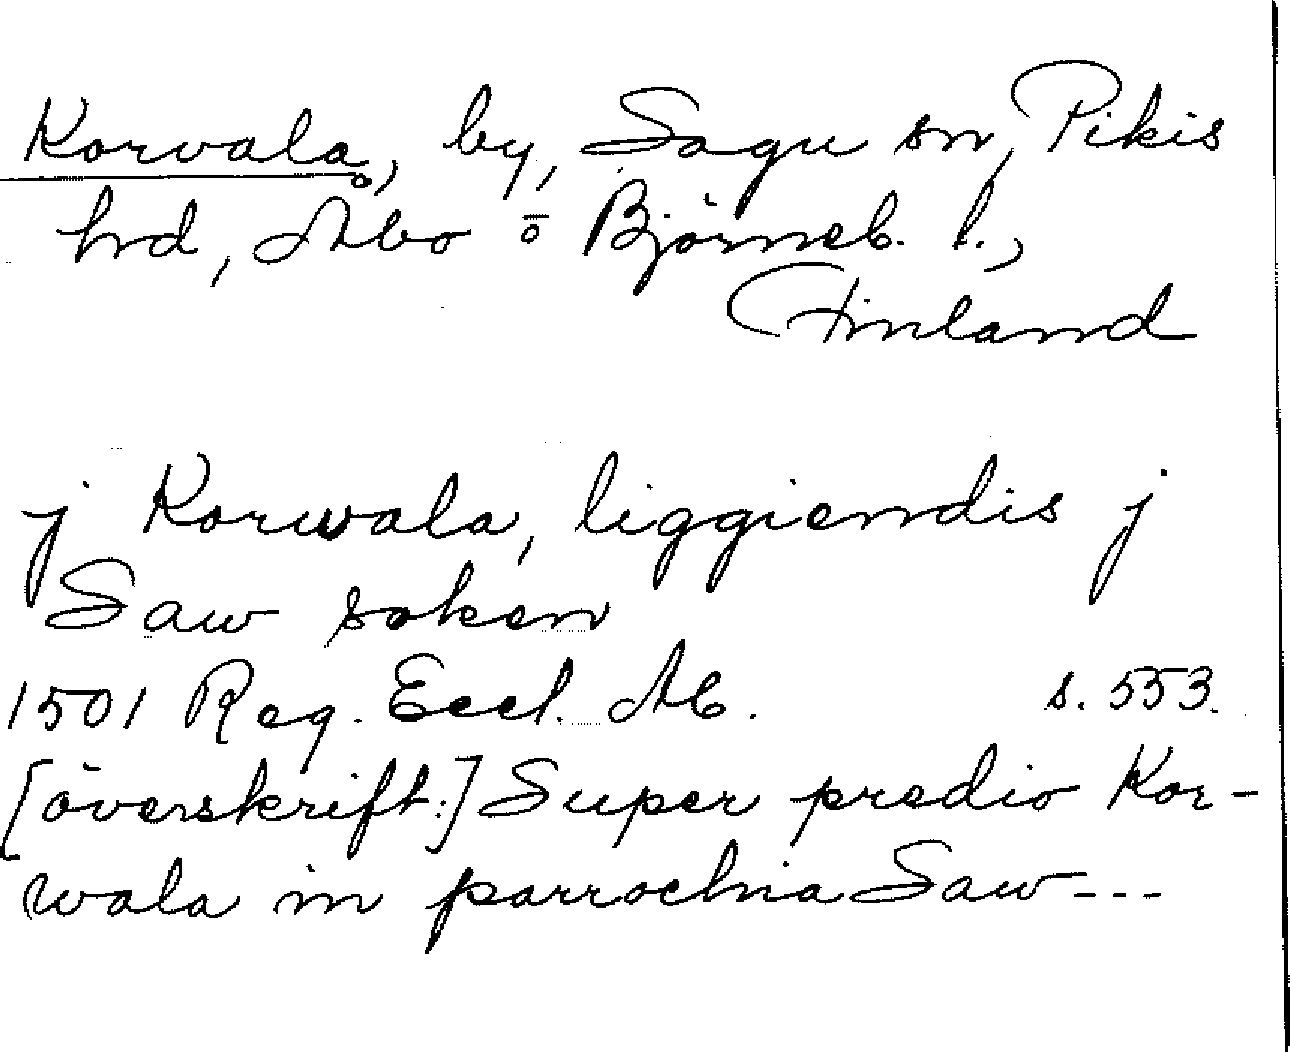 Korvala, by, Sagu sn, Pikis
hrd, Åbo o Björneb. l.,
Finland
j Korwala, liggiendis j
Saw soken
1501 Reg. Eccl. Ab. s. 553.
[överskrift:] Super predio Kor-
wala in parrochia Saw---